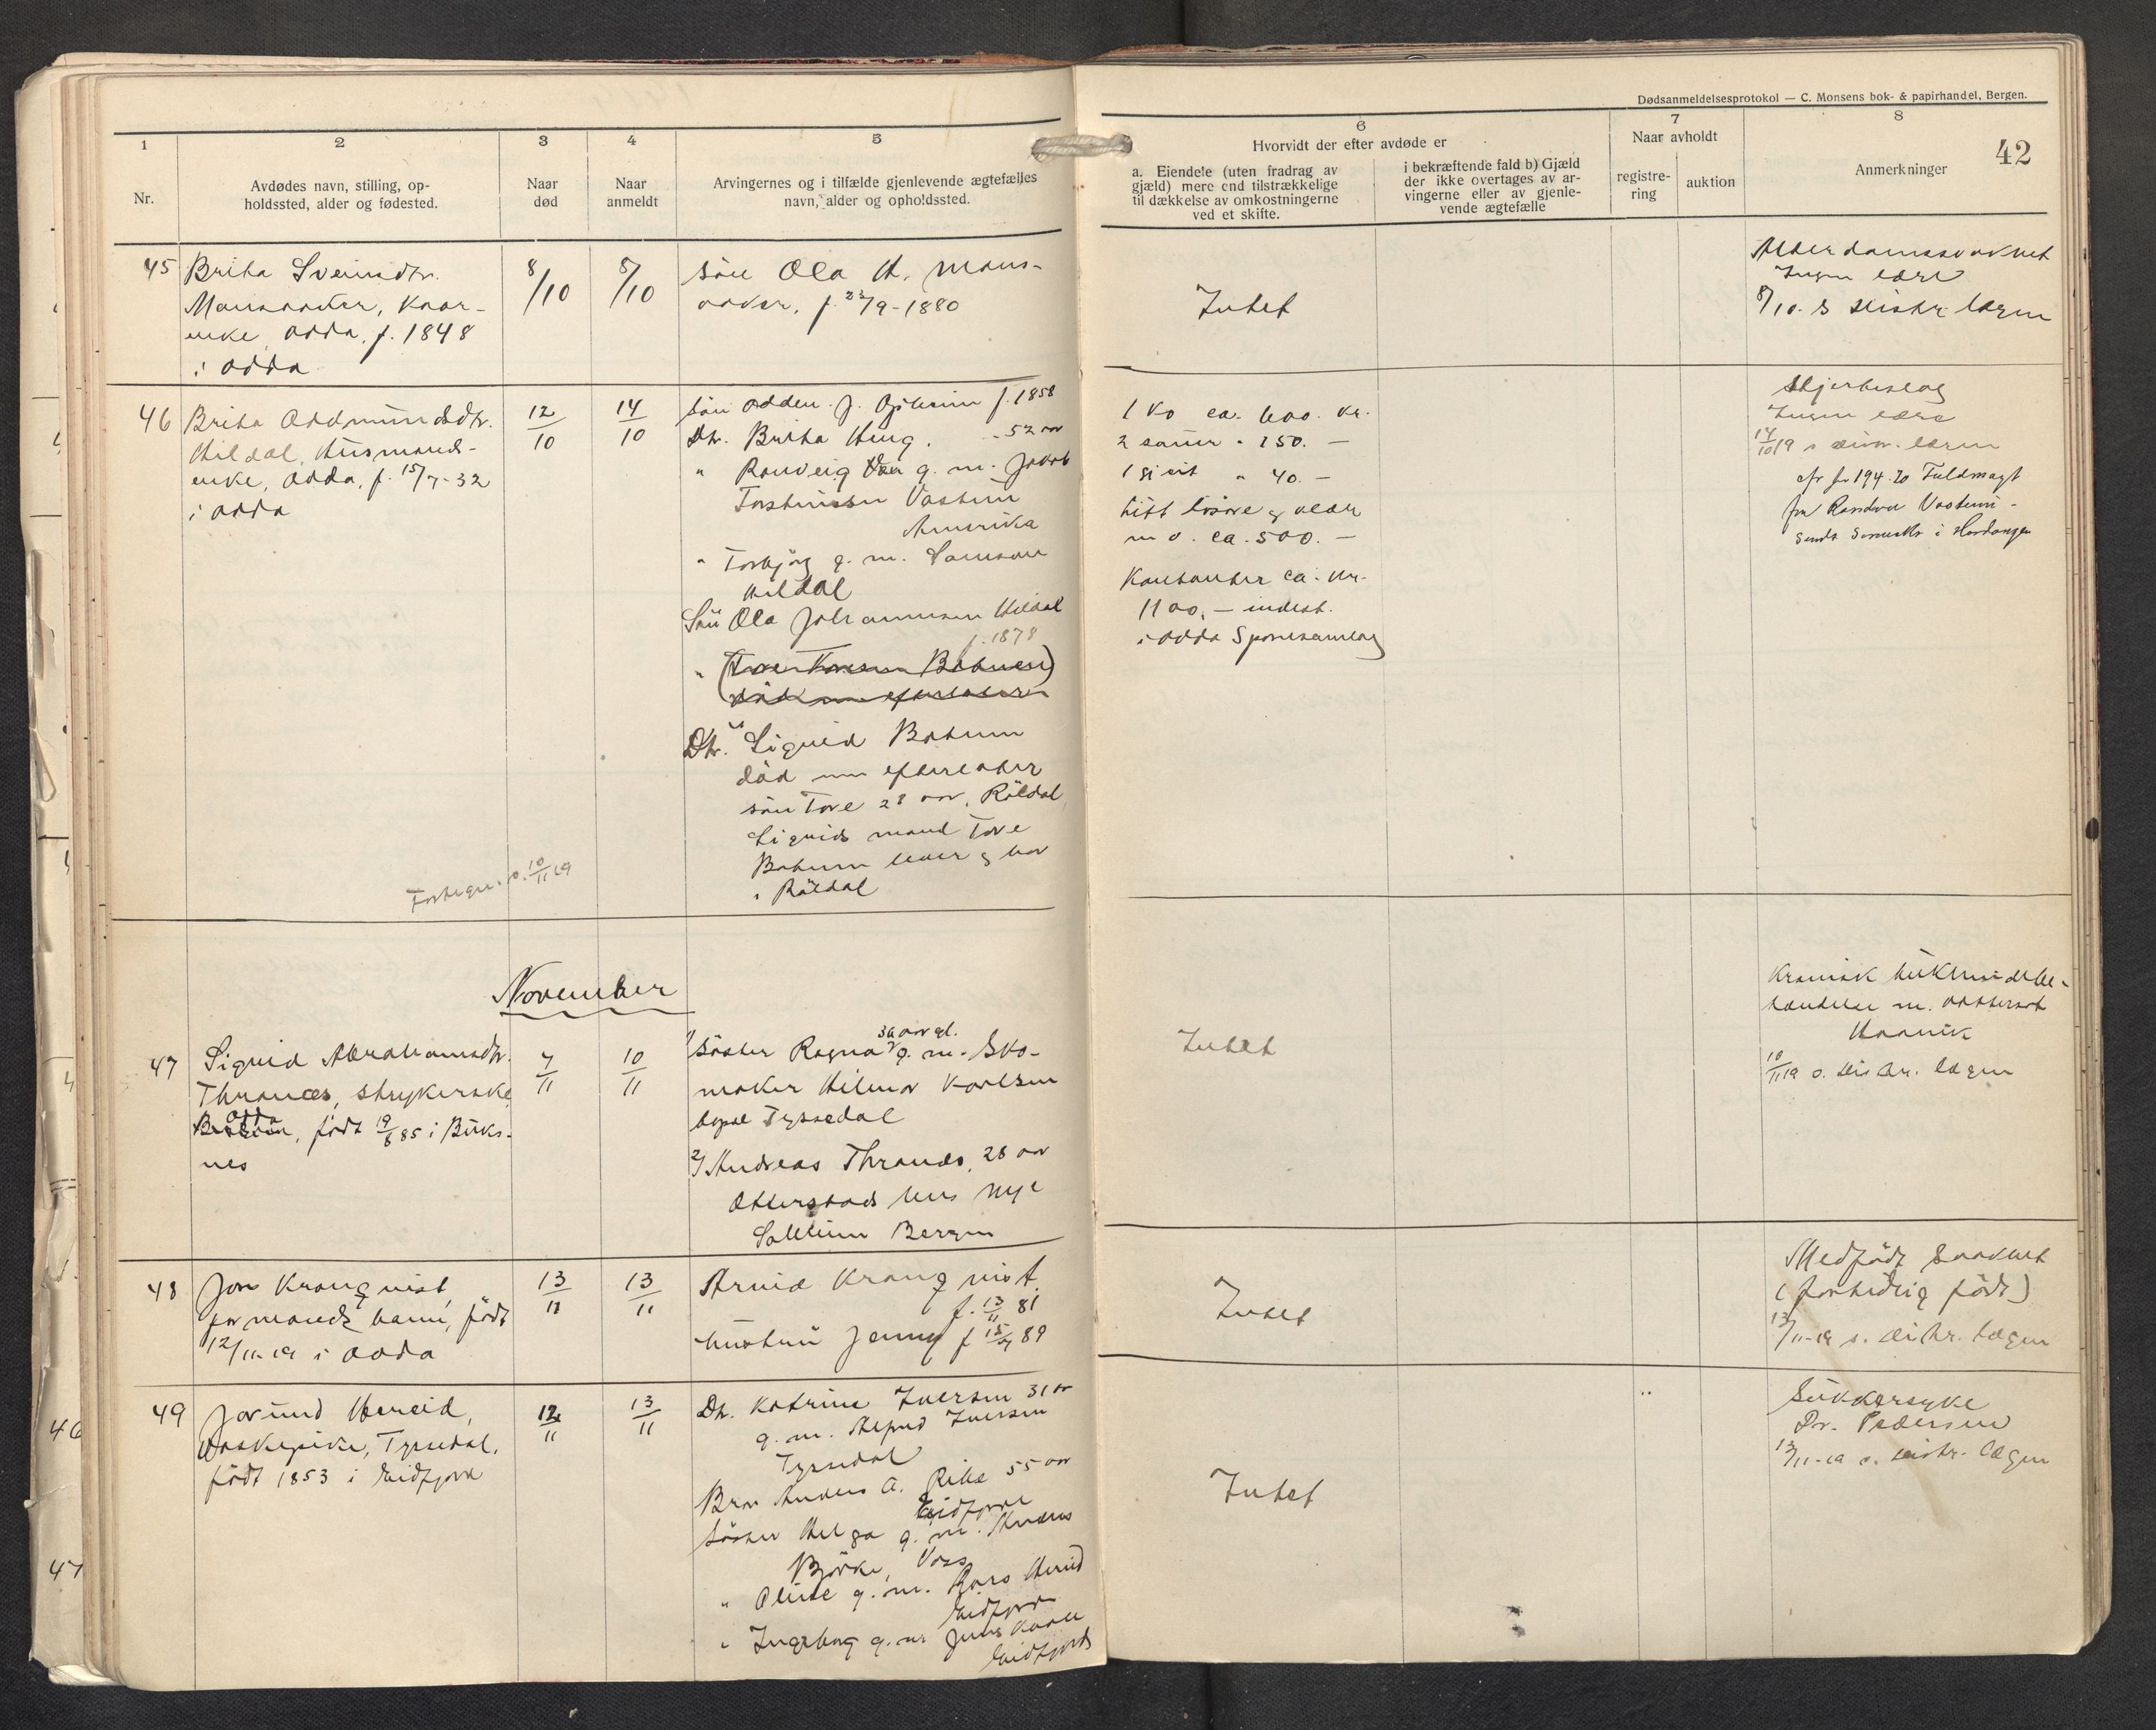 Dødsanmeldelsesprotokol — C. Monsens bok- & papirhandel, Bergen.
42
1
Nr.
2
Avdødes navn, stilling, op-
holdssted, alder og fødested.
3
Naar
død
4
Naar
anmeldt
5
Arvingernes og i tilfælde gjenlevende ægtefælles
navn, alder og opholdssted.
6
Hvorvidt der efter avdøde er
a. Eiendele (uten fradrag av
gjæld) mere end tilstrækkelige
til dækkelse av omkostningerne
ved et skifte.
i bekræftende fald b) Gjæld
der ikke overtages av ar-
vingerne eller av gjenle-
vende ægtefælle
7
Naar avholdt
registre-
ring
auktion
8
Anmerkninger
45
Brita Sveinsdtr.
Mansaaker, Kaar-
enke, Odda, f. 1848
i Odda
8/10
8/10
Sön Ola H. Mans-
aaker, f. 23/9-1880
Intet
Alderdomssvakhet
Ingen læge
8/10. s distr. lægen
46
Brita Oddmundsdtr.
Hildal, Husmands-
enke, Odda, f. 15/7-32
i Odda
12/10
14/10
Sön Odden J. f. 1858
Dtr. Brita 52 aar
" Ranveig g. m. Jakob
Torsteinsen Vastun
Amerika
" Torbjörg g. m. Samson
Hildal
Sön Ola Johannesen Hildal
f. 1878
" (Tore Toresen Botnen)
död men efterlater
Dtr. Sigrid Botnen
död men efterlater
sön Tore 28 aar, Röldal
Sigrids mand Tore
Botnen lever og bor
i Röldal
1 ko ca. 600. kr.
2 sauer " 150. —
1 gjeit " 40. —
Litt lösöre og klær
m v. ca. 500. —
Kontanter ca. kr.
1100, — indest.
i Odda Sparesamlag
Hjerteslag
Ingen læge
14/10 19 s distr. lægen
cfr jn 194.20 Fuldmagt
fra Vastun
sendt Sorenskr i Hardanger
Forkyn. s. 10/11 19
November
47
Sigrid Abrahamsdtr.
Thranes, strykerske
Odda
, födt 19/8 85 i Buks-
nes
7/11
10/11
1/ Söster Ragna 30 aar gl. g. m. Sko-
maker Hilmar Karlsen
bopæl Tyssedal
2/ Andreas Thranes, 28 aar
Otterstads hus Nye
Sandviken Bergen
Intet
Kronisk bukhinnebe-
tændelse m.
10/11 19 s. distr. lægen
48
Jon Kronqvist,
formands barn, födt
12/11-19 i Odda
13/11
13/11
Arvid Kronqvist
f. 13/11 81
hustru Jenny f 89
Intet
Medfödt svakhet
(fortidlig födt)
13/11-19 s. distr. lægen
49
Jorund Hereid,
Vaskepike, Tyssedal,
födt 1853 i Eidfjord
12/11
13/11
Dtr. Katrine Iversen 31 aar
g. m. Alfred Iversen
Tyssedal
Bror Anders A. 55 aar
Eidfjord
Söster Helga g. m. Anders
Björke, Voss
" Oline g. m. Lars Hereid
Eidfjord
" Ingeborg g. m Jens
Eidfjord
Intet
Sukkersyke
Dr. Pedersen
13/11-19 s. distr. lægen
46
47